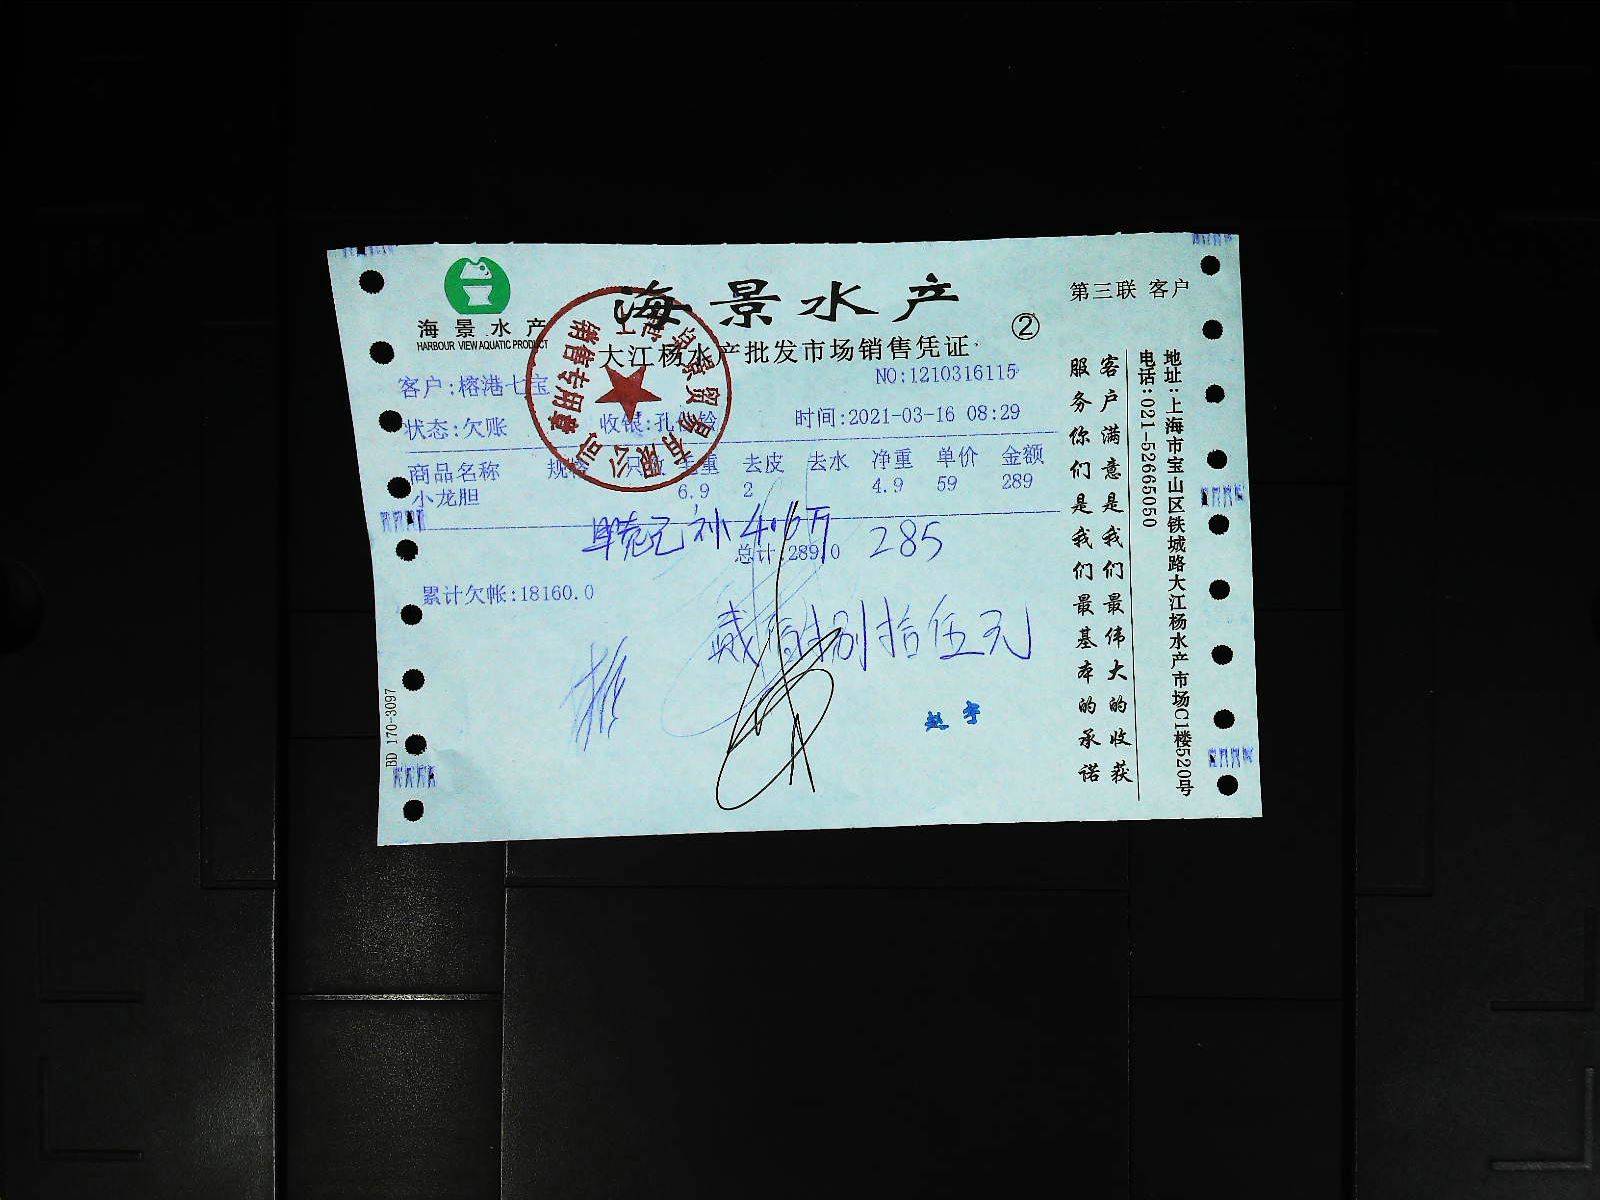 海景水产
第三联 客户
海景水产
HARBOUR VIEW AQUATIC PRODUCT
②
大江杨水产批发市场销售凭证
客户:榕港七宝
NO:1210316115
状态:欠账 收银:孔 铃 时间:2021-03-16 08:29
商品名称 规格 只数 毛重 去皮 去水 净重 单价 金额
小龙胆 6.9 2 4.9 59 289
补
285
总计:289.0
累计欠帐:18160.0
贰佰捌拾伍元
赵宇
BD 170-3097
销售专用章
景贸易有限公司
客户满意是我们最伟大的收获
服务你们是我们最基本的承诺
地址:上海市宝山区铁城路大江杨水产市场C1楼520号
电话:021-52665050